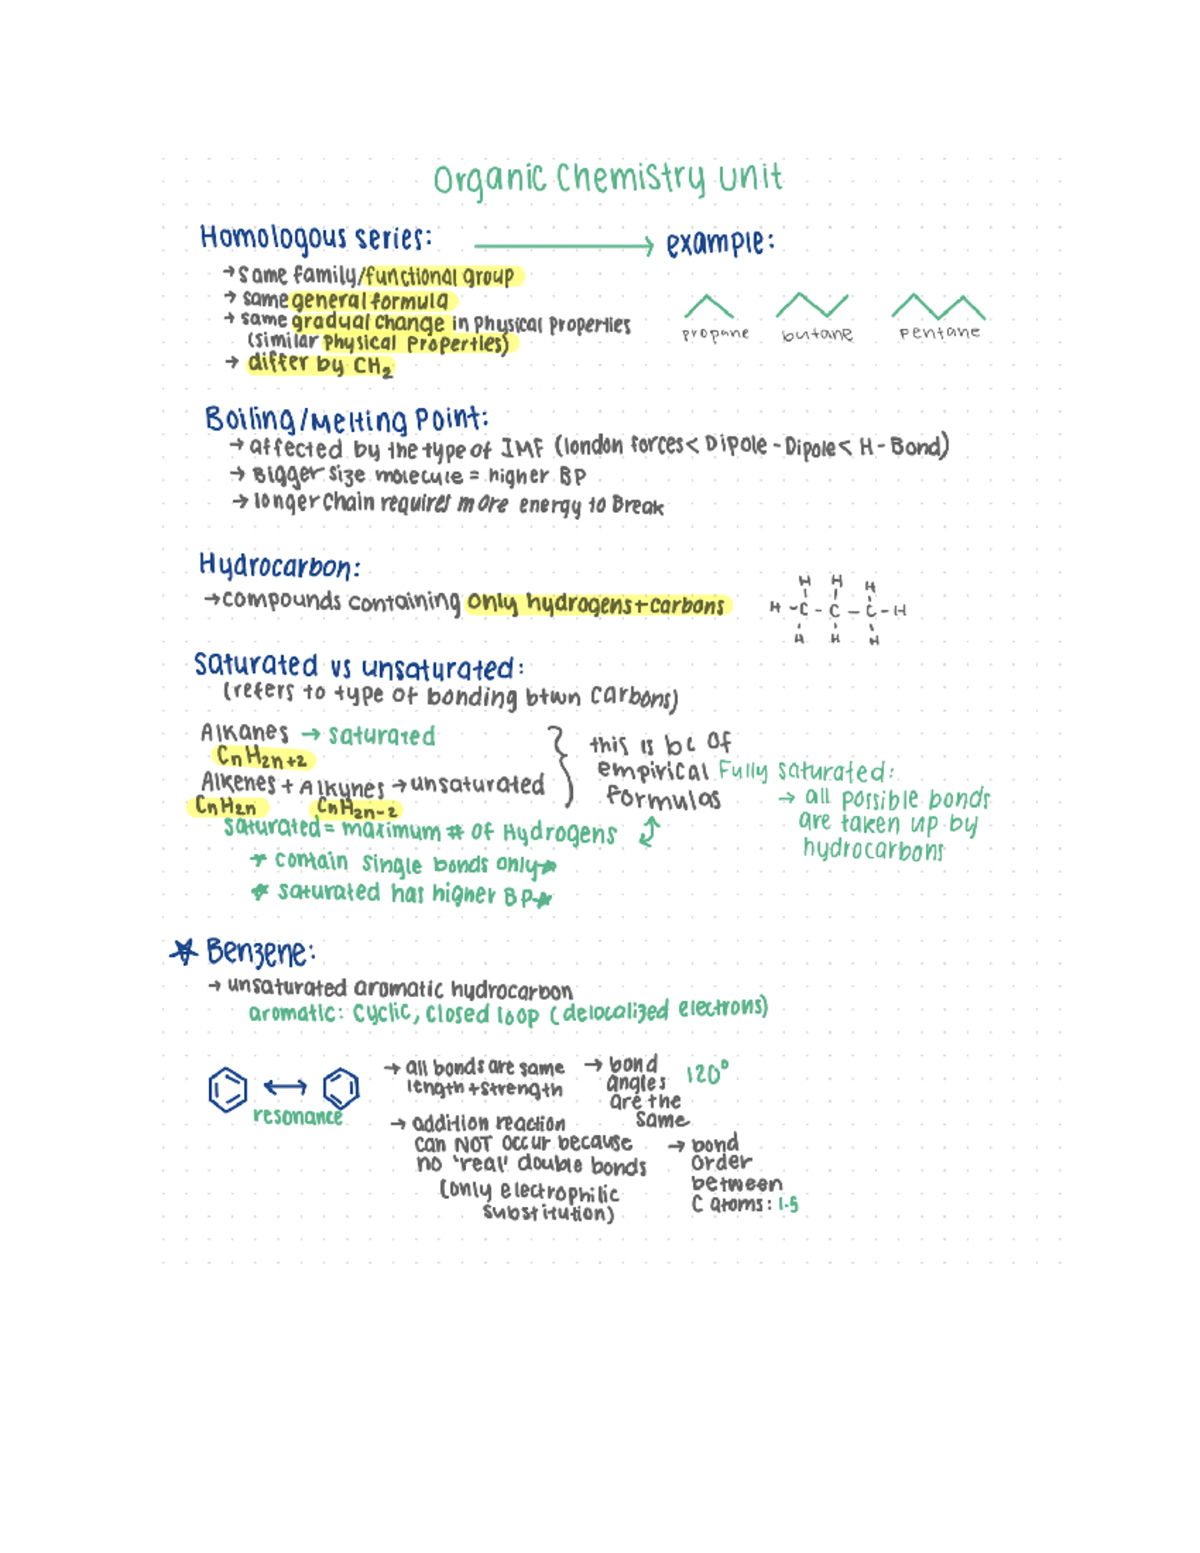 Organic Chemistry unit
Homologous series: → example:
→ same family/functional group
→ same general formula
→ same gradual change in physical properties
(similar physical properties)
→ differ by CH₂
propane butane pentane
Boiling/Melting Point:
→ affected by the type of IMF (london forces < Dipole - Dipole < H - Bond)
→ Bigger size molecule = higher BP
→ longer chain requires more energy to Break
Hydrocarbon:
→ compounds containing only hydrogens + carbons
H H H
H - C - C - C - H
H H H
Saturated vs unsaturated:
(refers to type of bonding btwn carbons)
Alkanes → saturated
CnH2n+2
Alkenes + Alkynes → unsaturated
CnH2n CnH2n-2
this is bc of
empirical
formulas
Fully saturated:
→ all possible bonds
are taken up by
hydrocarbons
saturated = maximum # of Hydrogens
* contain single bonds only *
* saturated has higher BP *
☆ Benzene:
→ unsaturated aromatic hydrocarbon
aromatic: cyclic, closed loop (delocalized electrons)
resonance
→ all bonds are same
length + strength
→ addition reaction
can NOT occur because
no 'real' double bonds
(only electrophilic
substitution)
→ bond
angles
are the
same
120°
→ bond
order
between
C atoms: 1.5